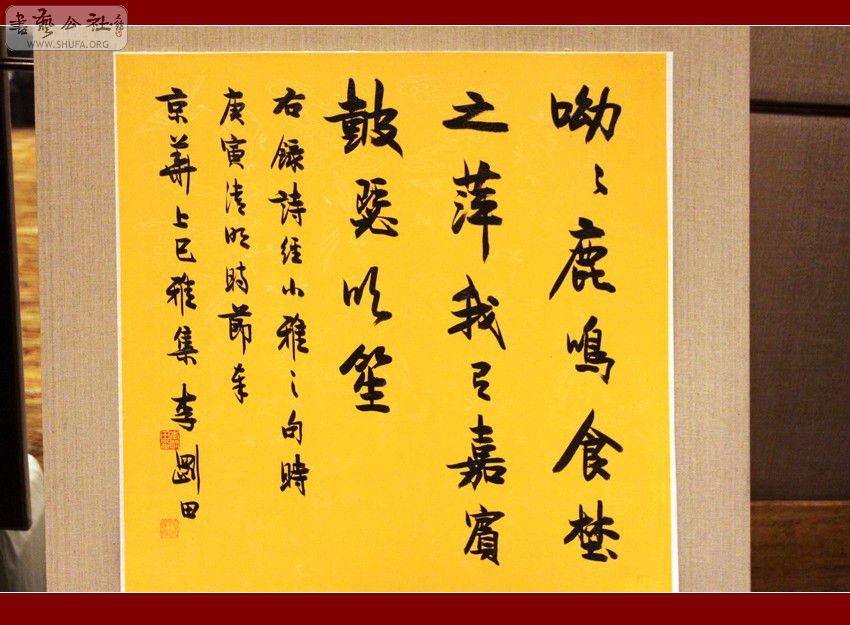 書藝公社
WWW.SHUFA.ORG
呦〻鹿鳴食埜
之萍我有嘉賓
鼓瑟吹笙
右録詩經小雅之句時
庚寅清明時節
京華上巳雅集李剛田